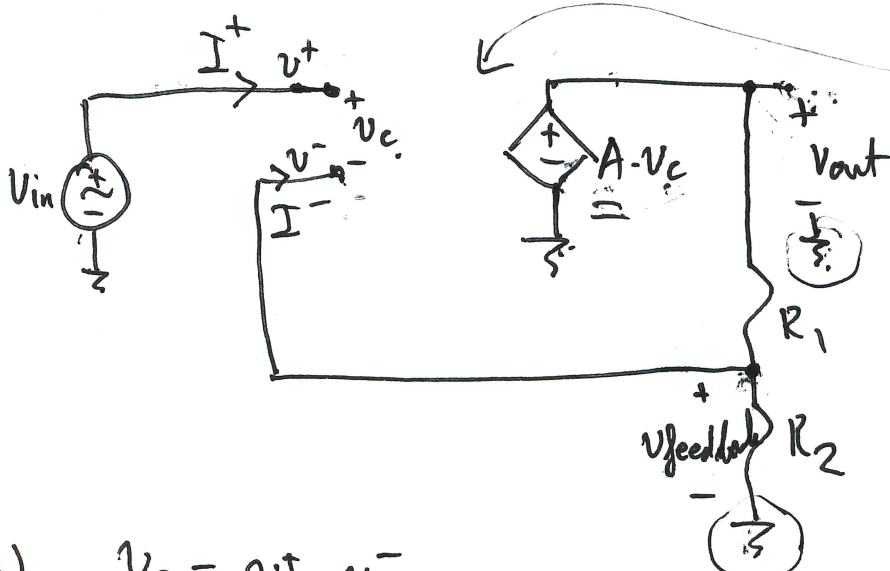 I⁺
v⁺
+
v_c
-
v⁻
I⁻
V_in
+
-
+
-
A·v_c
+
V_out
-
R₁
+
V_feedback
-
R₂
V_c = v⁺ - v⁻